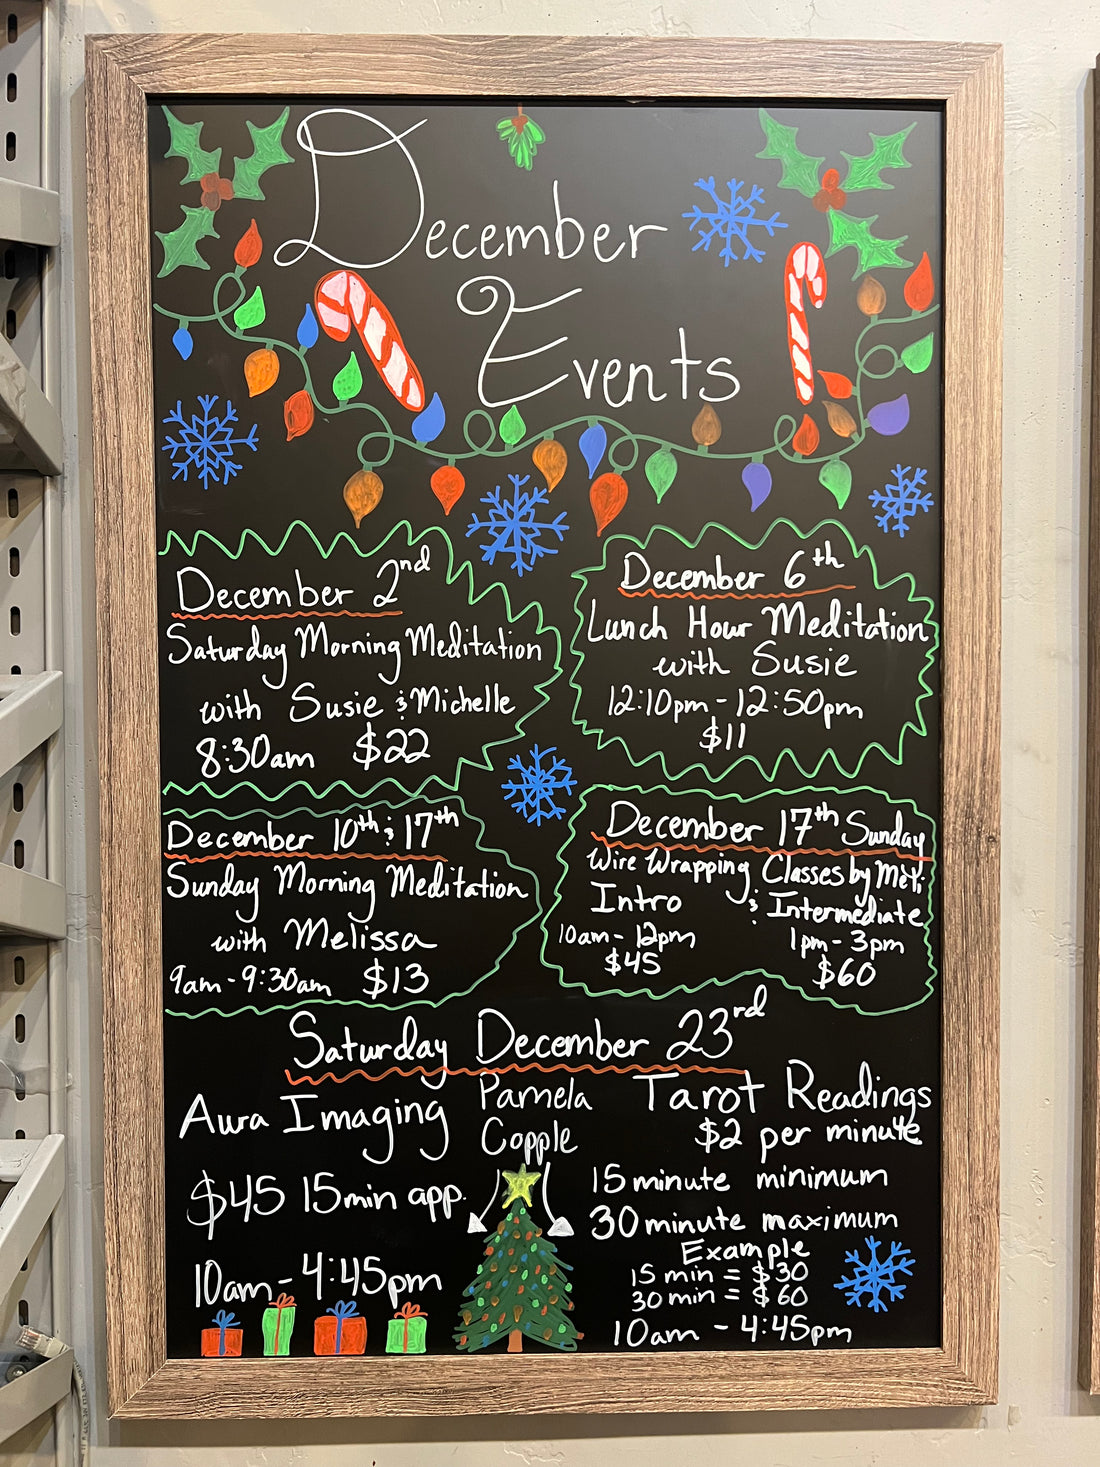 December
Events
December 2nd
Saturday Morning Meditation
with Susie & Michelle
8:30am $22
December 6th
Lunch Hour Meditation
with Susie
12:10pm - 12:50pm
$11
December 10th & 17th
Sunday Morning Meditation
with Melissa
9am - 9:30am $13
December 17th Sunday
Wire Wrapping Classes by Meti
Intro & Intermediate
10am - 12pm
$45
1pm - 3pm
$60
Saturday December 23rd
Aura Imaging
$45 15min app.
10am - 4:45pm
Pamela
Copple
Tarot Readings
$2 per minute
15 minute minimum
30 minute maximum
Example
15 min = $30
30 min = $60
10am - 4:45pm